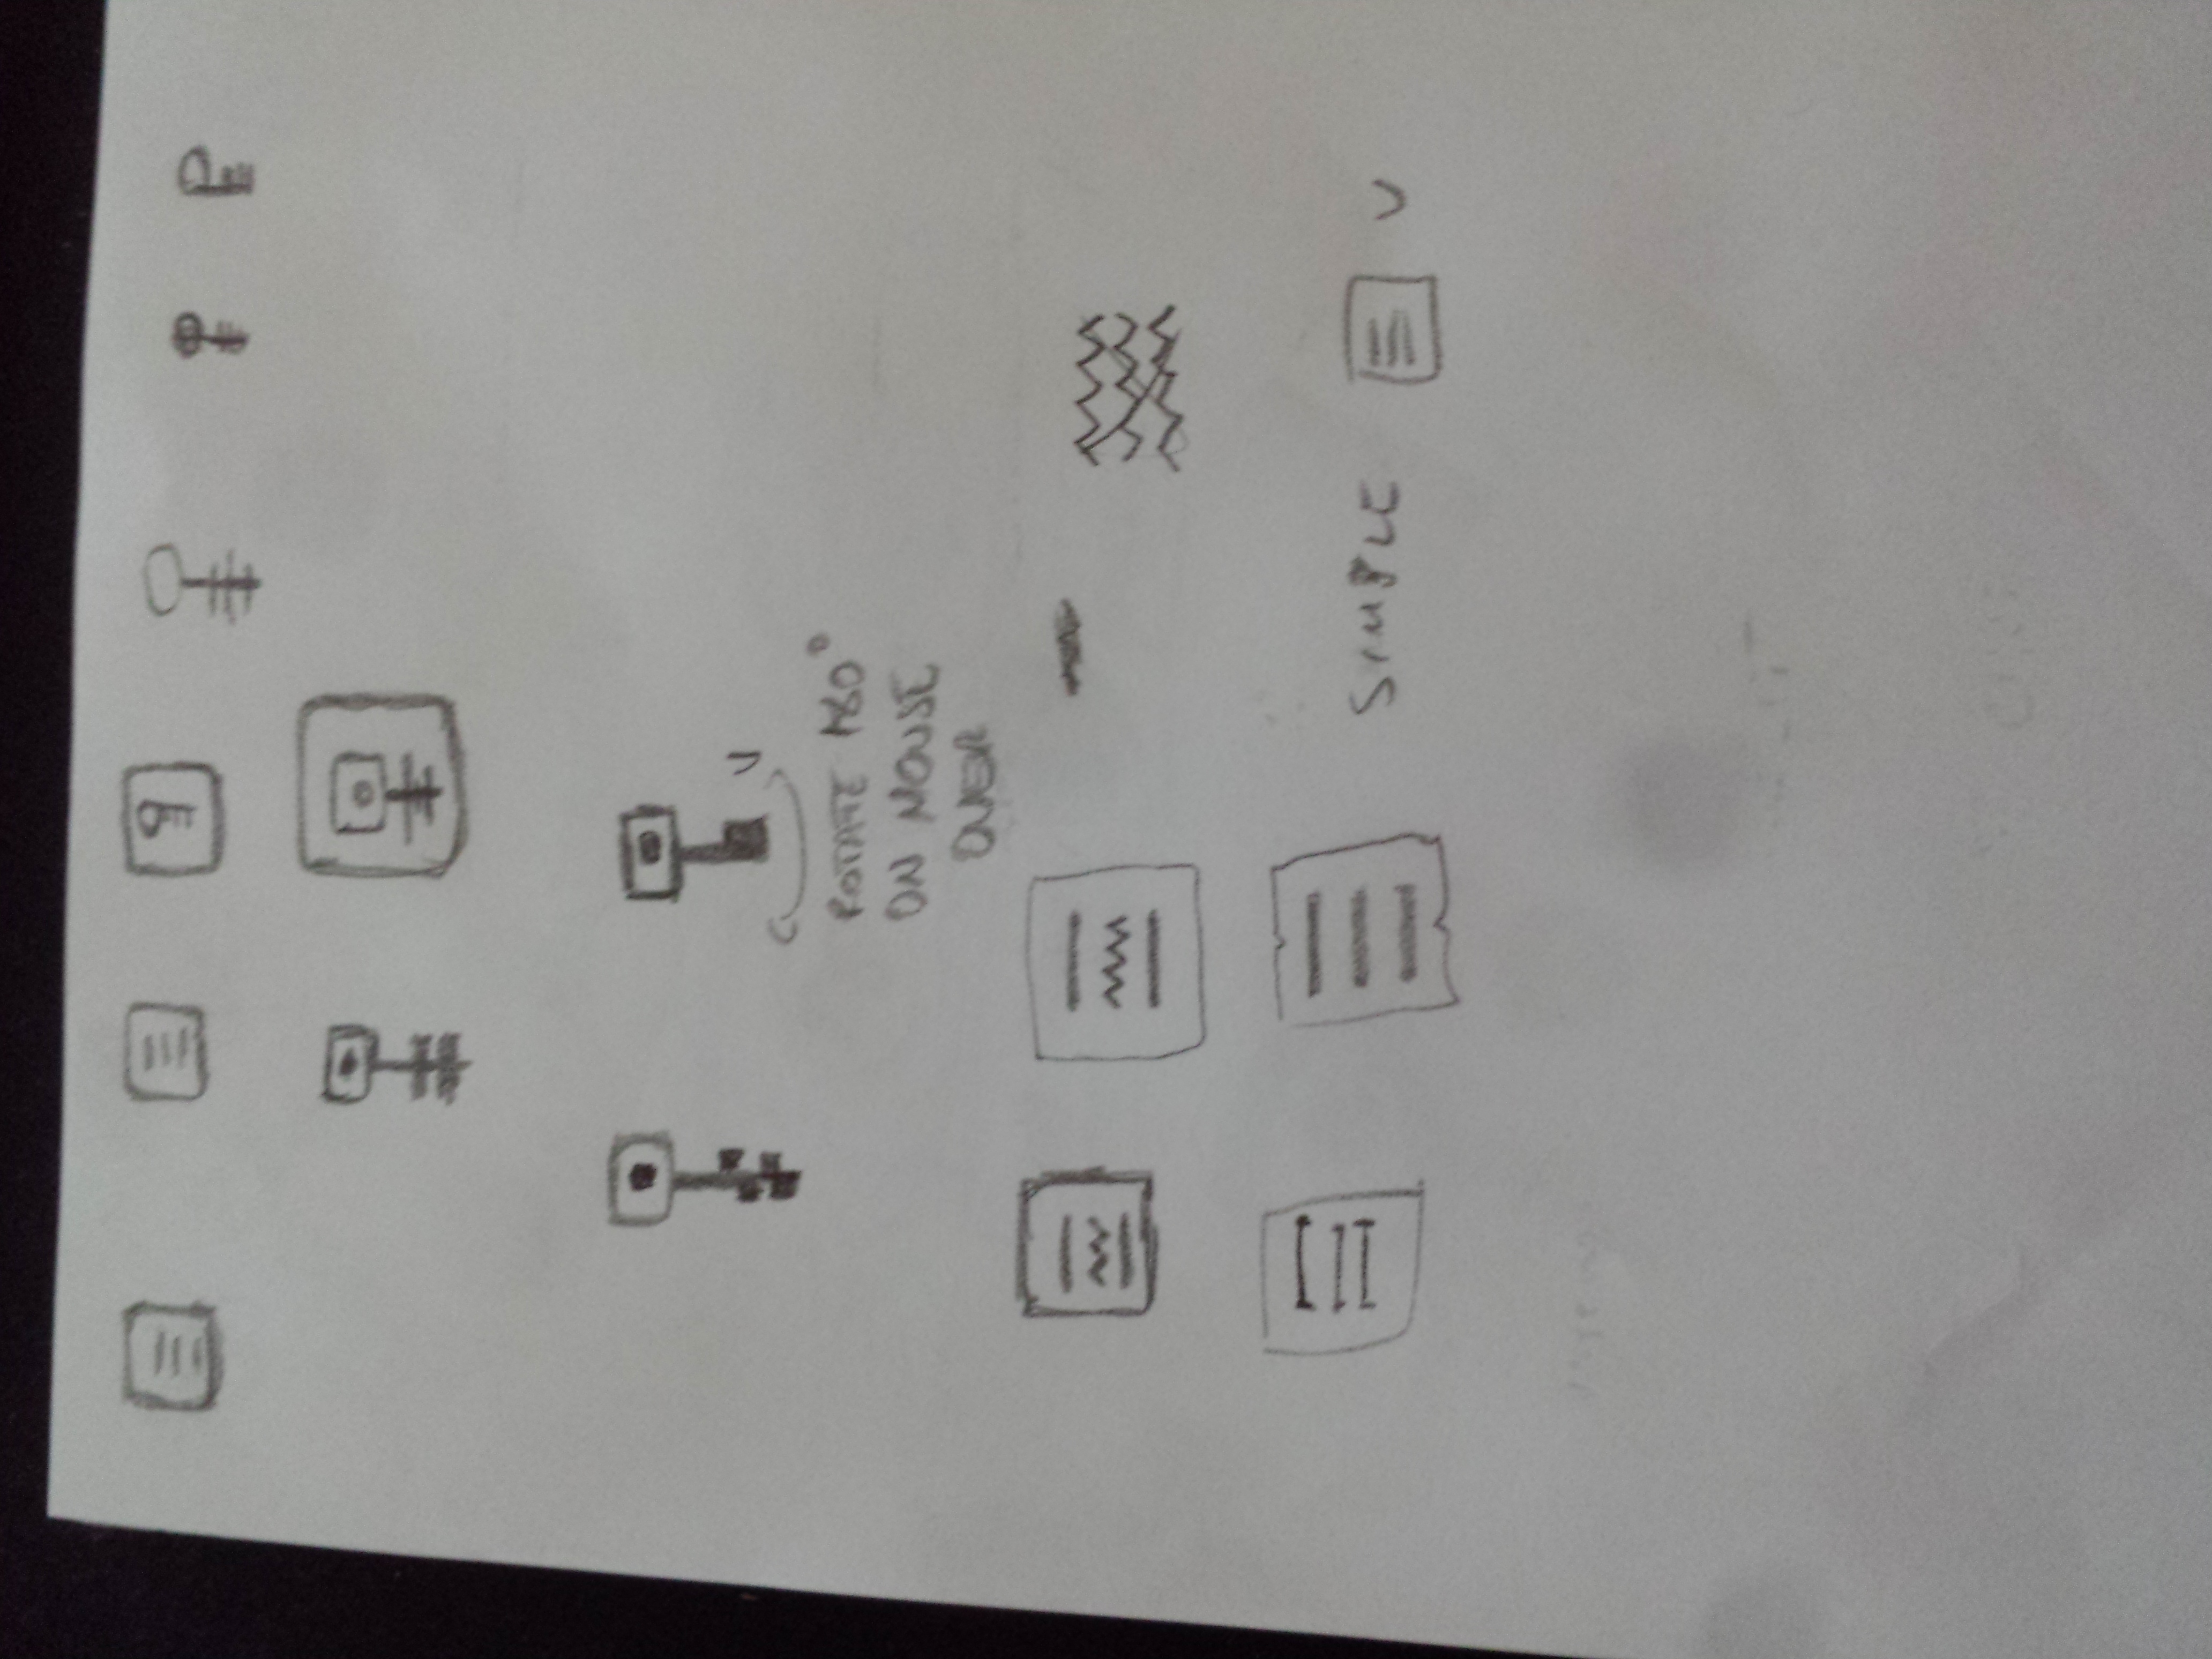 ROTATE 180°
ON MOUSE
OVER
SIMPLE